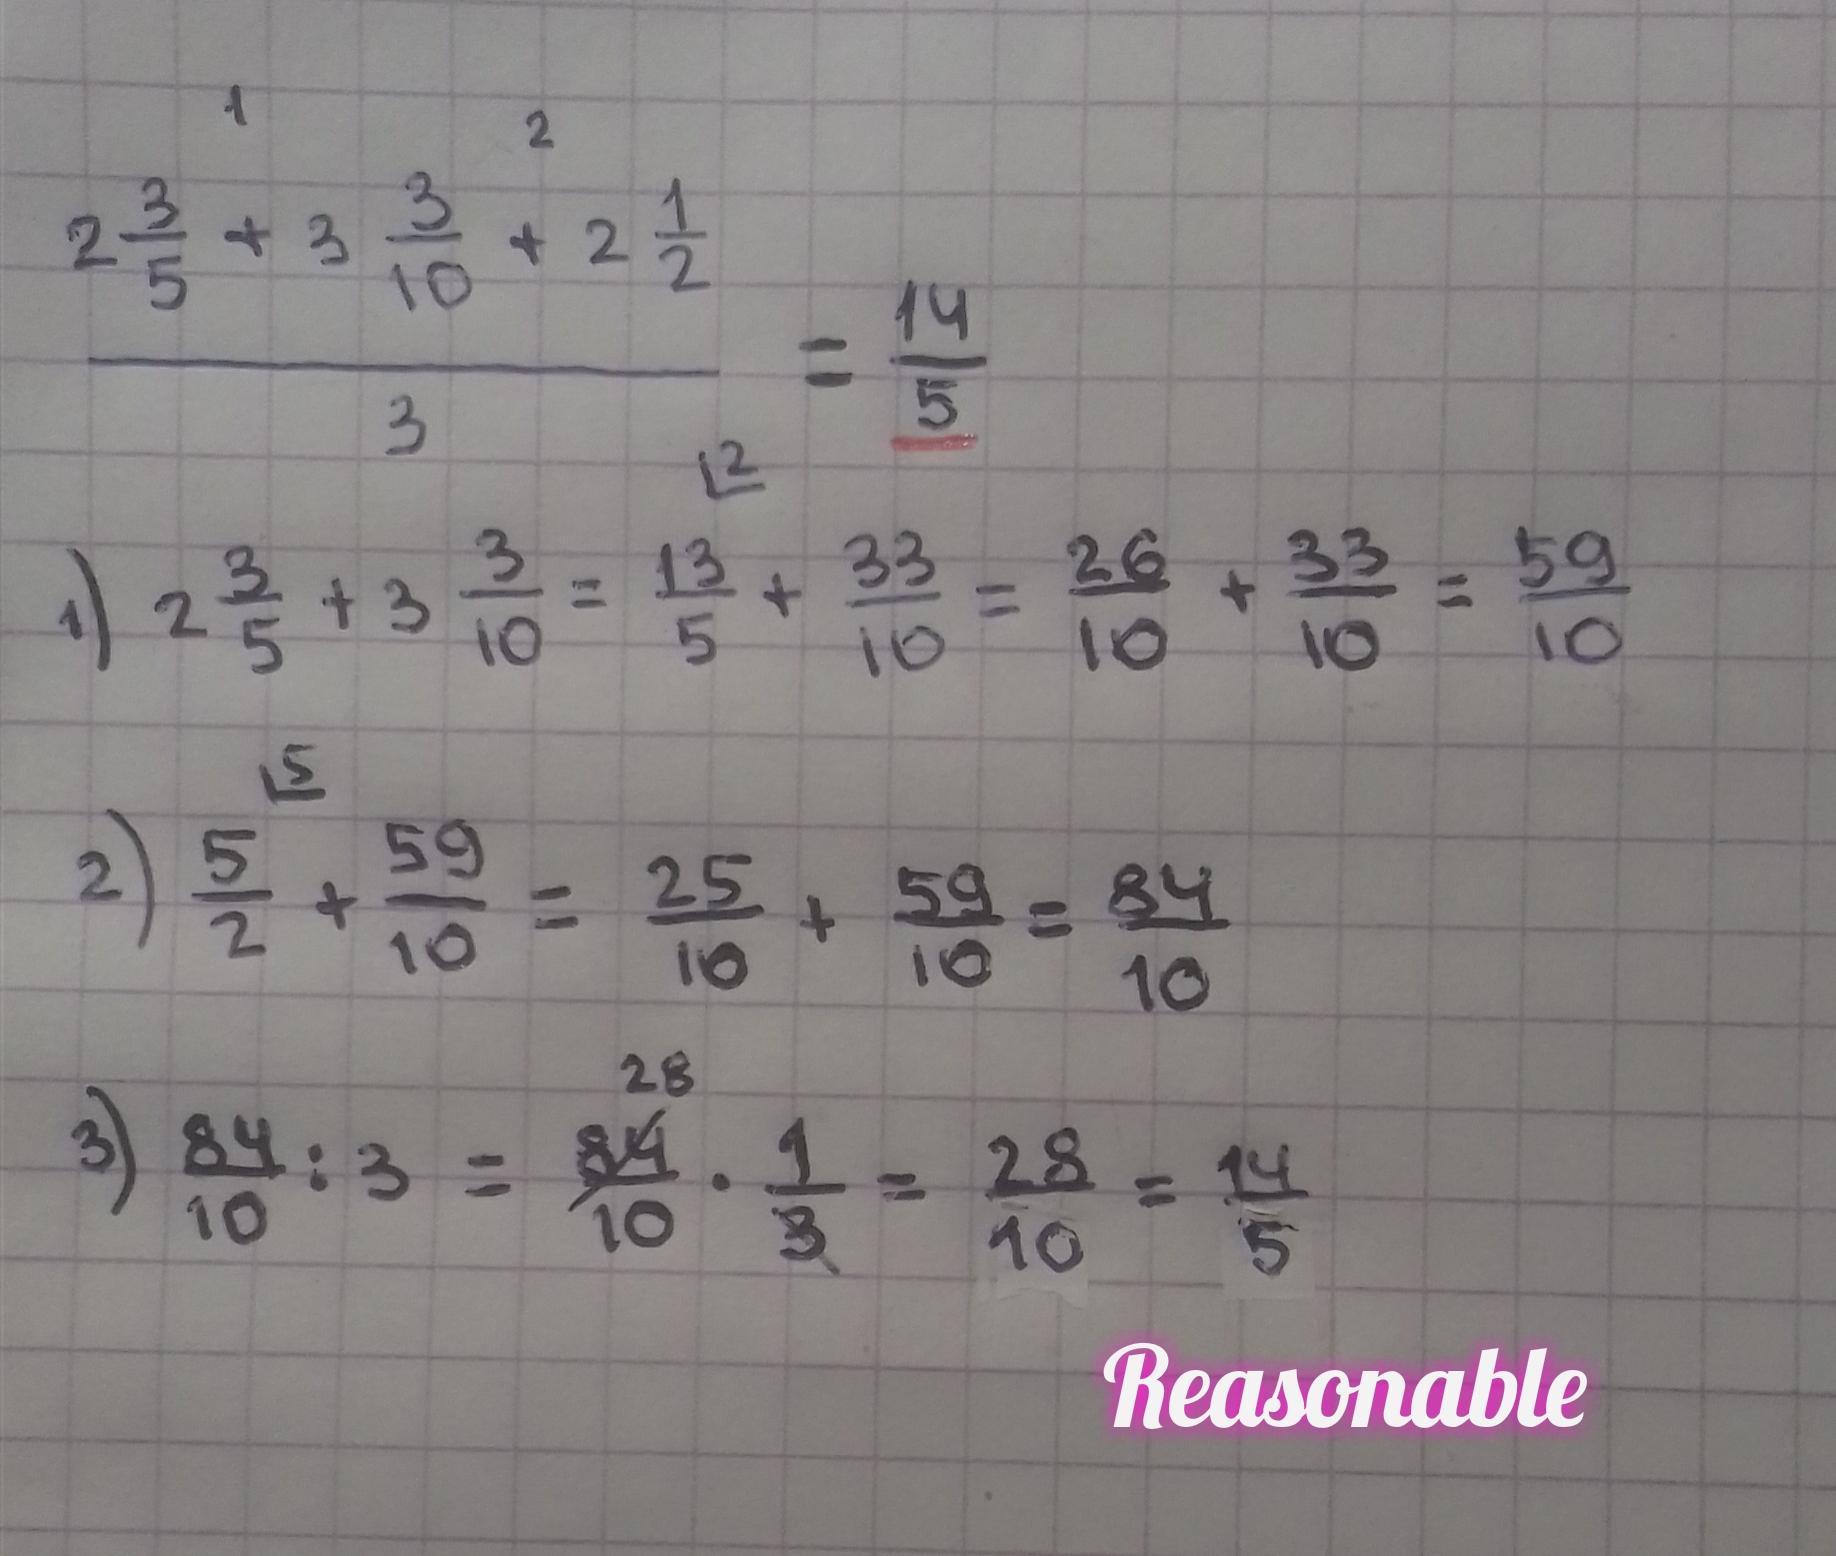 1 2
2 3/5 + 3 3/10 + 2 1/2
3
= 14/5
2
1) 2 3/5 + 3 3/10 = 13/5 + 33/10 = 26/10 + 33/10 = 59/10
5
2) 5/2 + 59/10 = 25/10 + 59/10 = 84/10
28
3) 84/10 : 3 = 84/10 · 1/3 = 28/10 = 14/5
Reasonable